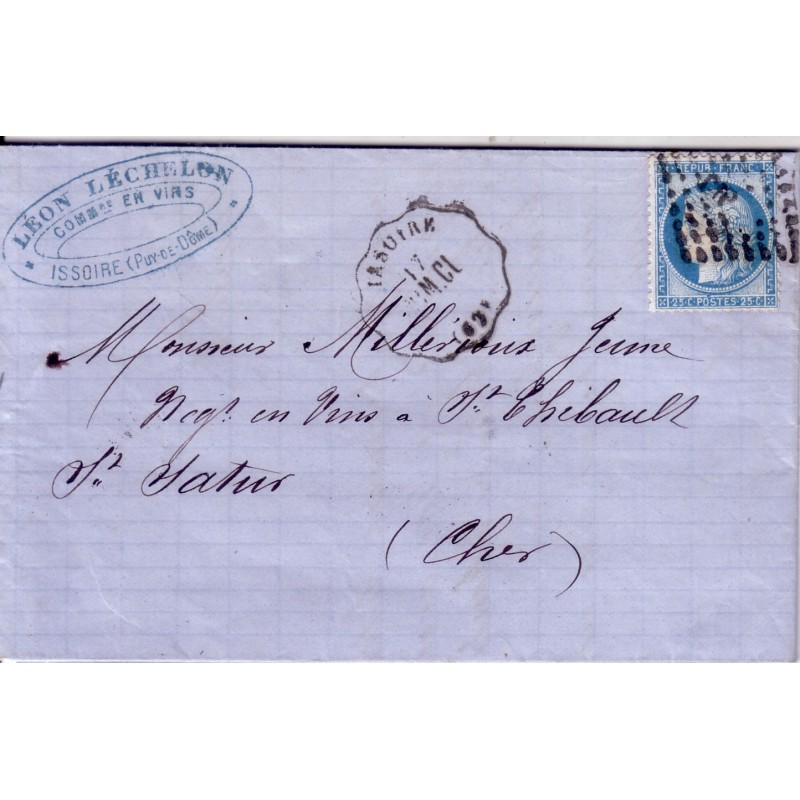 LÉON LÉCHELON
COMMRE EN VINS
ISSOIRE (PUY-DE-DÔME)
ISSOIRE
17
M.CL
(62)
REPUB · FRANC
25·C·POSTES·25·C
Monsieur Millérioux Jeune
Negt. en Vins à St. Thibault
St. Satur
(Cher)